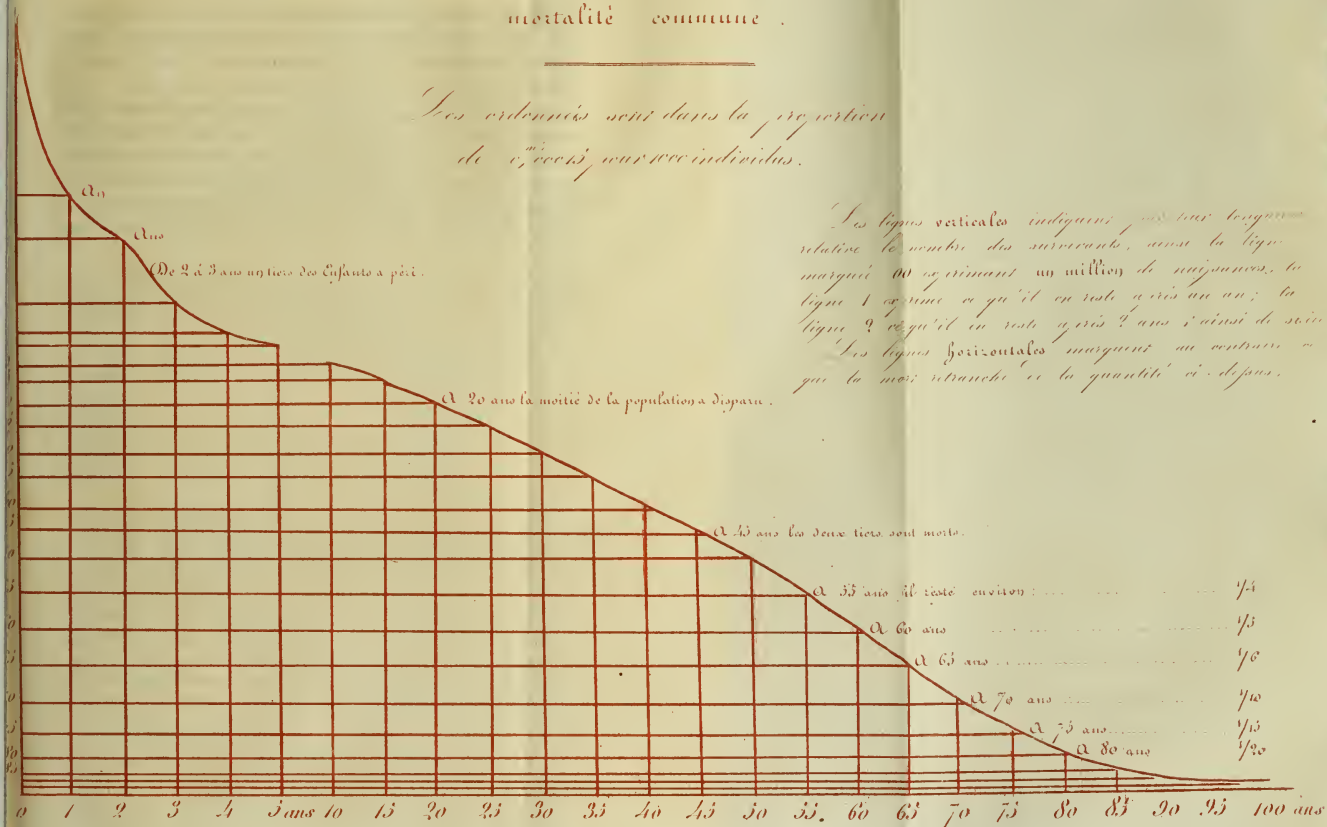 mortalité commune .
Les ordonnées sont dans la proportion
de 0,m00015 pour 1000 individus.
Les lignes verticales indiquent par leur
relative le nombre des survivants, ainsi la ligne
marquée 00 exprimant un million de naissances, la
ligne 1 exprime ce qu'il en reste après un an; la
ligne 2 ce qu'il en reste après 2 ans; ainsi de
Les lignes horizontales marquent au contraire ce
que la mort retranche de la quantité ci-dessus.
An
Ans
De 2 à 3 ans un tiers des Enfants a péri.
A 20 ans la moitié de la population a disparu.
A 45 ans les deux tiers sont morts.
A 55 ans il reste environ : 1/4
A 60 ans 1/5
A 65 ans 1/6
A 70 ans 1/10
A 75 ans 1/15
A 80 ans 1/20
80
85
0 1 2 3 4 5 ans 10 15 20 25 30 35 40 45 50 55 60 65 70 75 80 85 90 95 100 ans